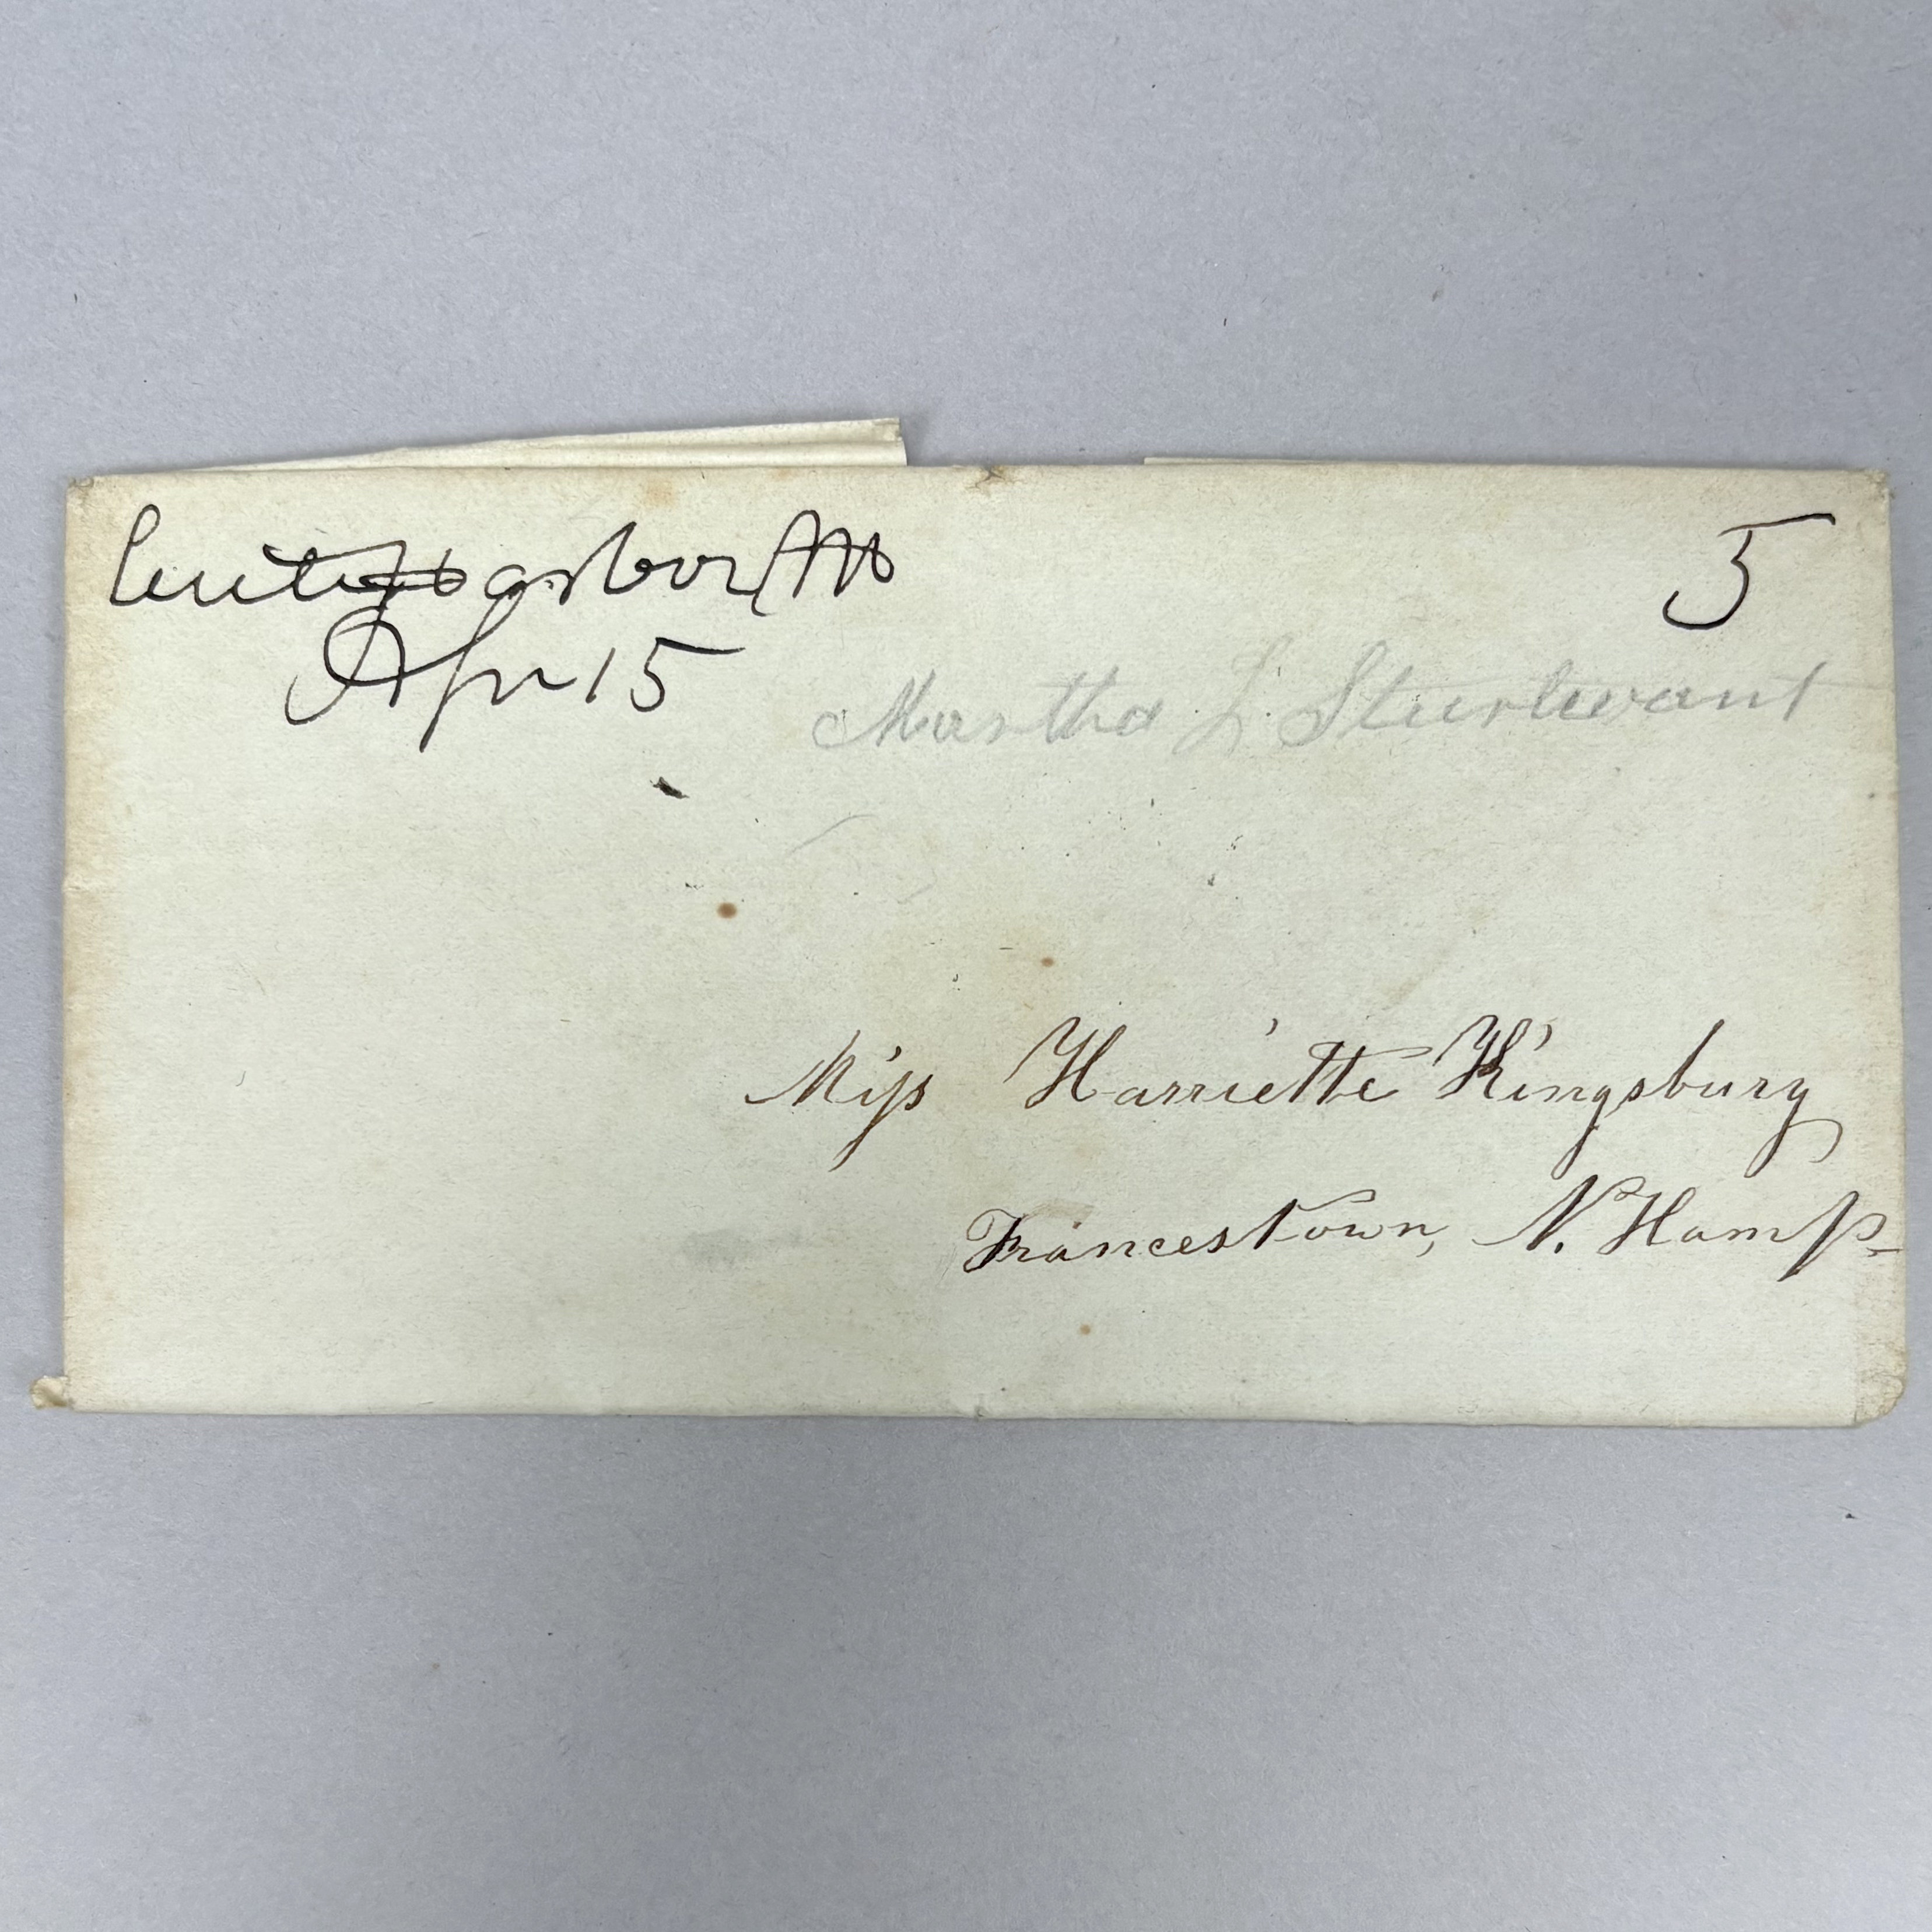 Harbor NH
5
Apr 15
Martha L. Sturtevant
Miss Harriette Kingsbury
Francestown, N. Hamp-